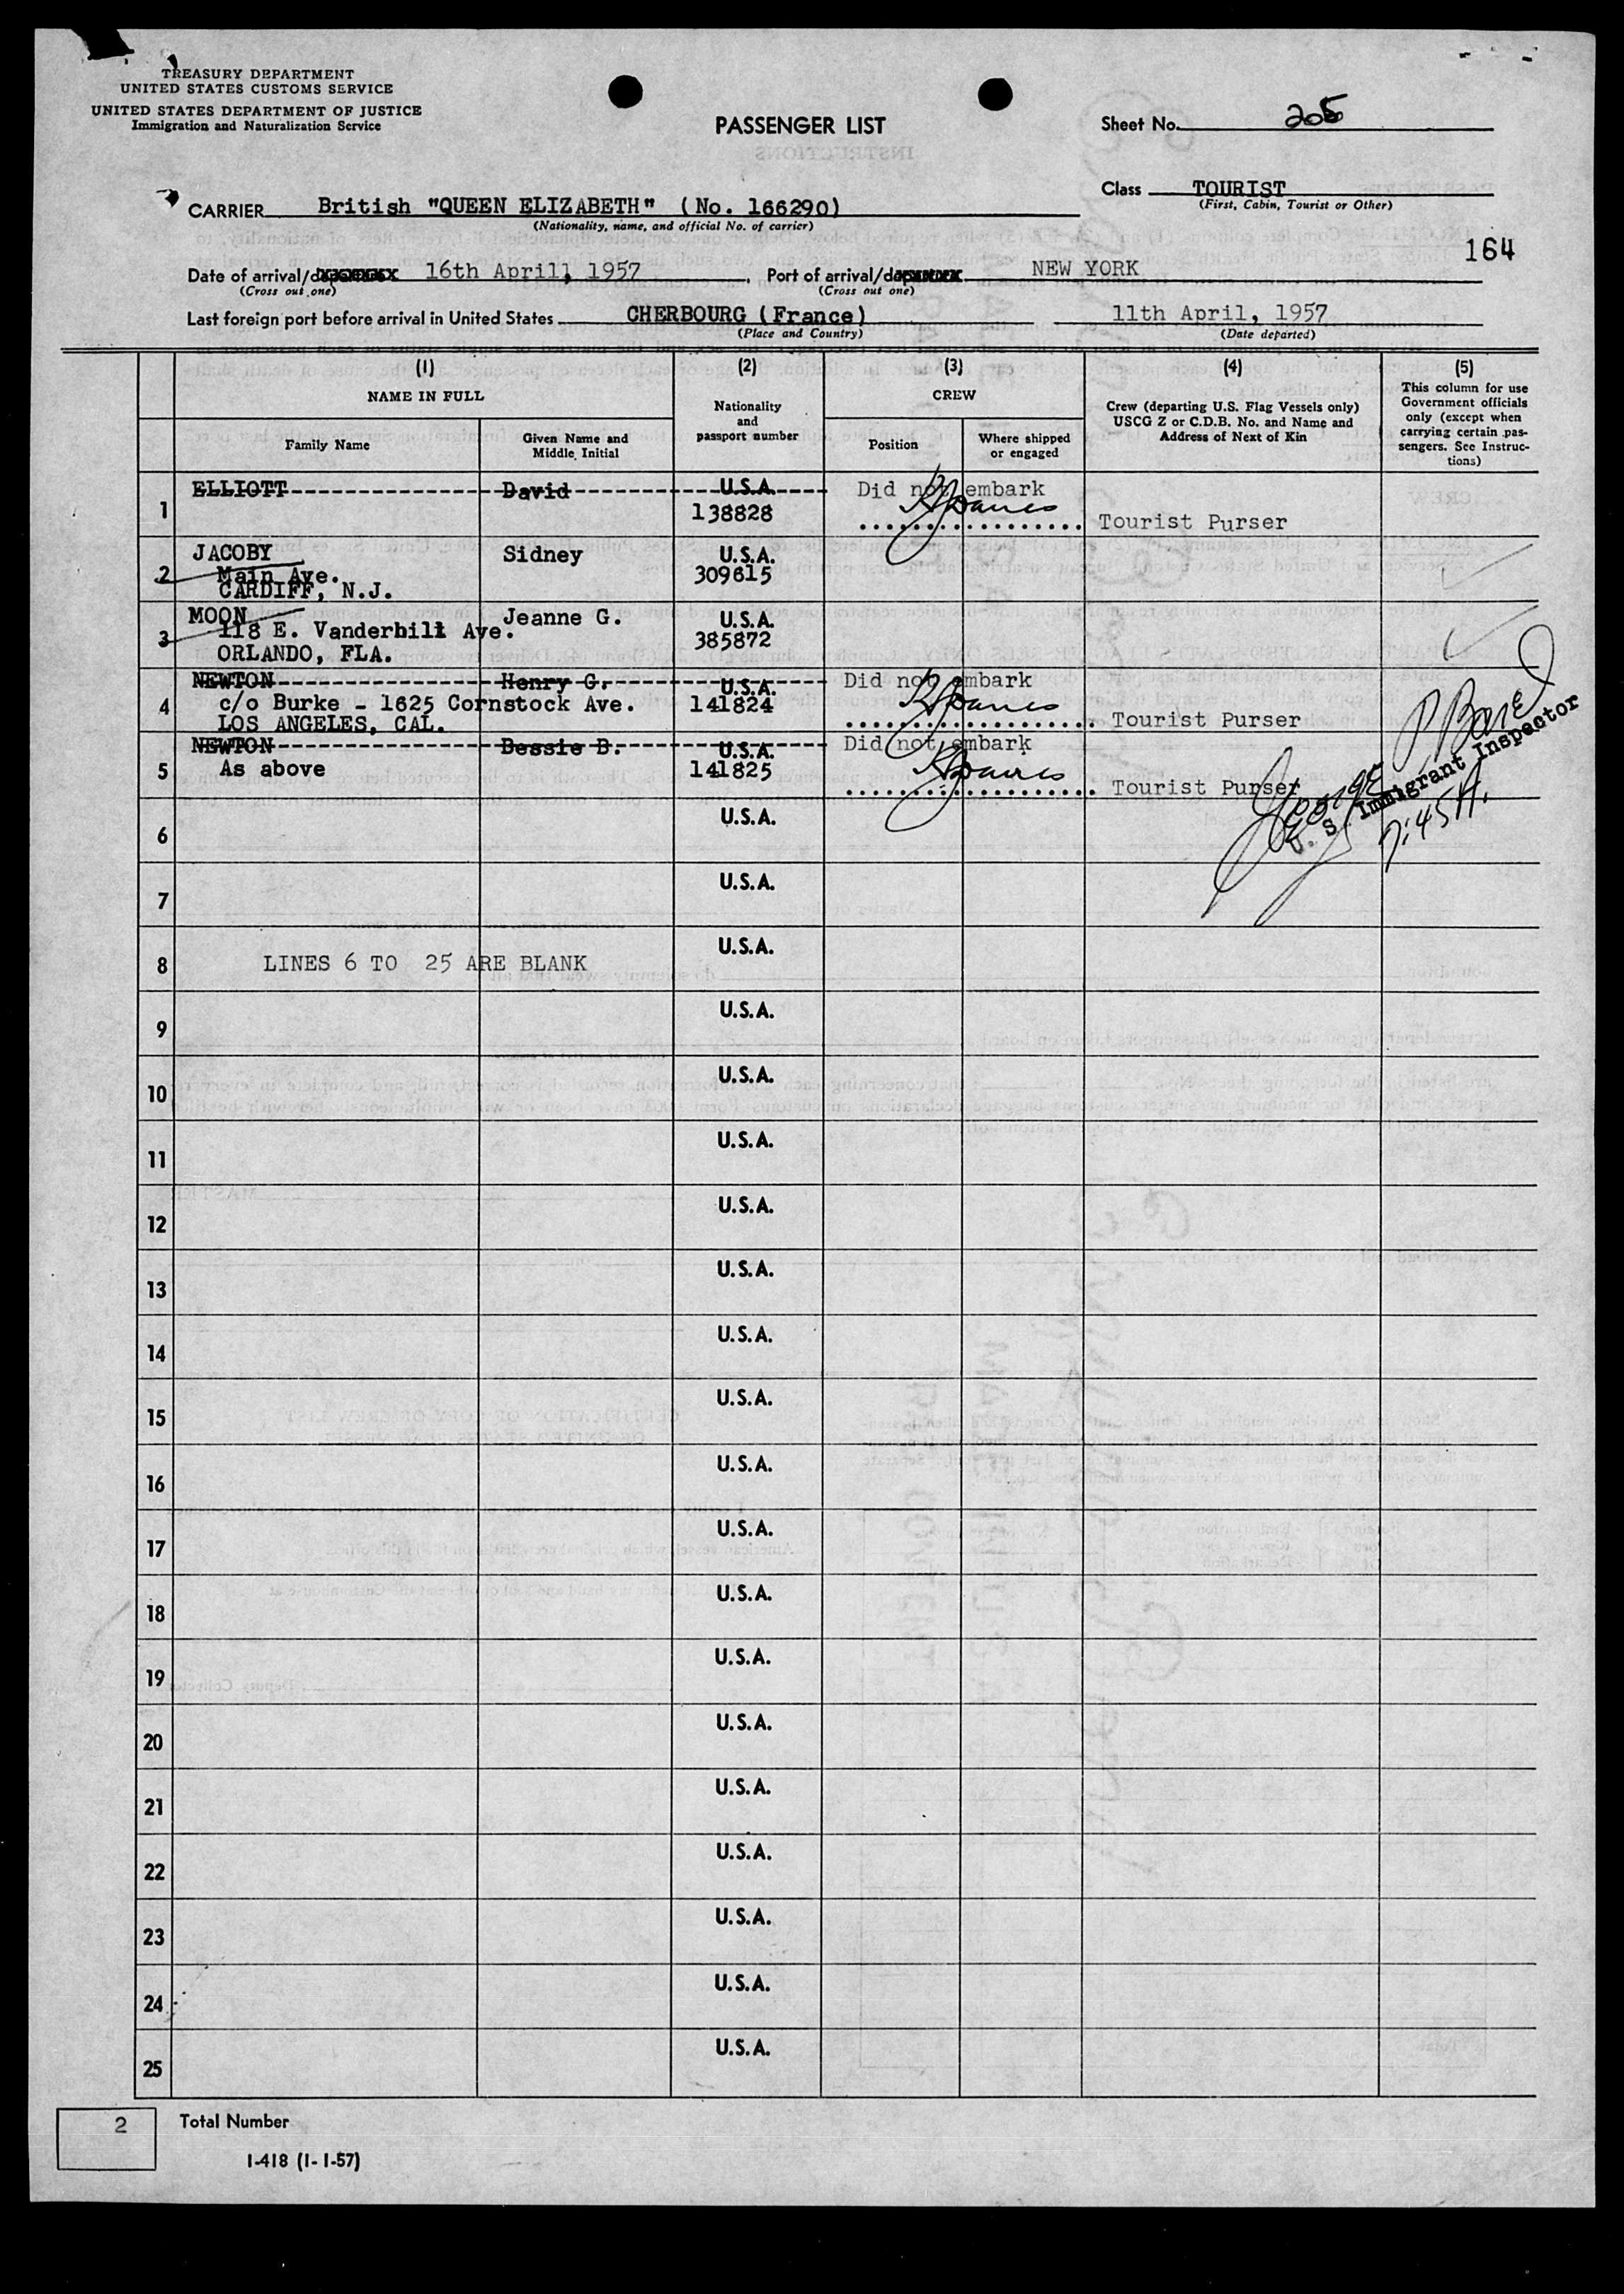 TREASURY DEPARTMENT
UNITED STATES CUSTOMS SERVICE
UNITED STATES DEPARTMENT OF JUSTICE
Immigration and Naturalization Service
PASSENGER LIST
INSTRUCTIONS
Sheet No. 205
Class TOURIST
(First, Cabin, Tourist or Other)
CARRIER British "QUEEN ELIZABETH" (No. 166290)
(Nationality, name, and official No. of carrier)
164
Date of arrival/departure 16th April, 1957, Port of arrival/departure NEW YORK
(Cross out one) (Cross out one)
Last foreign port before arrival in United States CHERBOURG (France) 11th April, 1957
(Place and Country) (Date departed)
(1) (2) (3) (4) (5)
NAME IN FULL
Family Name
Given Name and Middle Initial
Nationality and passport number
CREW
Position
Where shipped or engaged
Crew (departing U.S. Flag Vessels only)
USCG Z or C.D.B. No. and Name and
Address of Next of Kin
This column for use
Government officials
only (except when
carrying certain pas-
sengers. See Instruc-
tions)
1 ELLIOTT David U.S.A. Did not embark
138828 Tourist Purser
2 JACOBY Sidney U.S.A.
Main Ave. 309615
CARDIFF, N.J.
3 MOON Jeanne G. U.S.A.
118 E. Vanderbilt Ave. 385872
ORLANDO, FLA.
4 NEWTON Henry G. U.S.A. Did not embark
c/o Burke - 1625 Cornstock Ave. 141824
LOS ANGELES, CAL. Tourist Purser
5 NEWTON Bessie B. U.S.A. Did not embark
As above 141825 Tourist Purser
George P Bare
U. S. Immigrant Inspector
7:45A.
6 U.S.A.
7 U.S.A.
8 LINES 6 TO 25 ARE BLANK U.S.A.
9 U.S.A.
10 U.S.A.
11 U.S.A.
12 U.S.A.
13 U.S.A.
14 U.S.A.
15 U.S.A.
16 U.S.A.
17 U.S.A.
18 U.S.A.
19 U.S.A.
20 U.S.A.
21 U.S.A.
22 U.S.A.
23 U.S.A.
24 U.S.A.
25 U.S.A.
2 Total Number
I-418 (1-1-57)